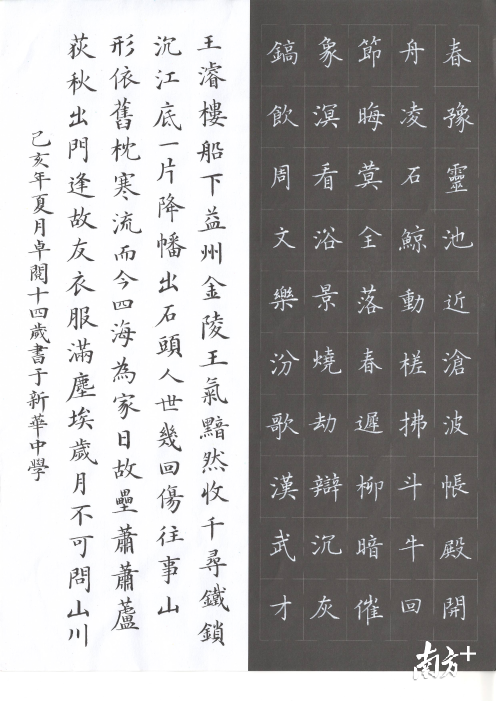 春豫靈池近滄波帳殿開
舟凌石鯨動槎拂斗牛回
節晦蓂全落春遲柳暗催
象溟看浴景燒劫辯沉灰
鎬飲周文樂汾歌漢武才
王濬樓船下益州金陵王氣黯然收千尋鐵鎖
沉江底一片降幡出石頭人世幾回傷往事山
形依舊枕寒流而今四海為家日故壘蕭蕭蘆
荻秋出門逢故友衣服滿塵埃歲月不可問山川
己亥年夏月卓閱十四歲書于新華中學
南方+